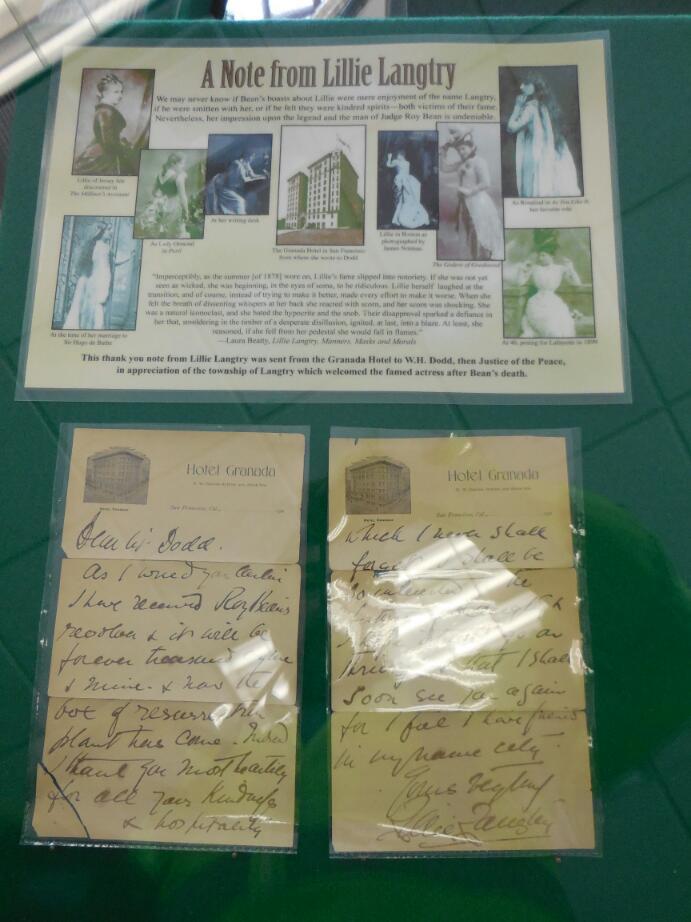 A Note from Lillie Langtry
We may never know if Bean's boasts about Lillie were mere enjoyment of the name Langtry,
if he were smitten with her, or if he felt they were kindred spirits—both victims of their fame.
Nevertheless, her impression upon the legend and the man of Judge Roy Bean is undeniable.
Lillie of Jersey
discovered in
The Milliner's
As Lady Ormond
in Peril
At her writing desk
The Granada Hotel in San Francisco
from where she wrote to Dodd
Lillie in Boston as
photographed by
James Notman
The Godess of Goodwood
As Rosalind in As You Like It,
her favorite role
At the time of her marriage to
Sir Hugo de Bathe
At 46, posing for Lafayette in 1899
"Imperceptibly, as the summer [of 1878] wore on, Lillie's fame slipped into notoriety. If she was not yet
seen as wicked, she was beginning, in the eyes of some, to be ridiculous. Lillie herself laughed at the
transition, and of course, instead of trying to make it better, made every effort to make it worse. When she
felt the breath of dissenting whispers at her back she reacted with scorn, and her scorn was shocking. She
was a natural iconoclast, and she hated the hypocrite and the snob. Their disapproval sparked a defiance in
her that, smoldering in the timber of a desperate disillusion, ignited, at last, into a blaze. At least, she
reasoned, if she fell from her pedestal she would fall in flames."
—Laura Beatty, Lillie Langtry, Manners, Masks and Morals
This thank you note from Lillie Langtry was sent from the Granada Hotel to W.H. Dodd, then Justice of the Peace,
in appreciation of the township of Langtry which welcomed the famed actress after Bean's death.
Hotel Granada
San Francisco, Cal.
Dear Mr Dodd.
As I wired you
I have received Roy Bean's
revolver & it will be
forever treasured
& mine. & now the
box of resurrection
plant has come. Indeed
I thank you most heartily
for all your kindness
& hospitality
Hotel Granada
San Francisco, Cal.
which I never shall
forget I shall be
the
an
that I shall
soon see you again
for I feel I have friends
in my name city.
Yours very truly
Lillie Langtry